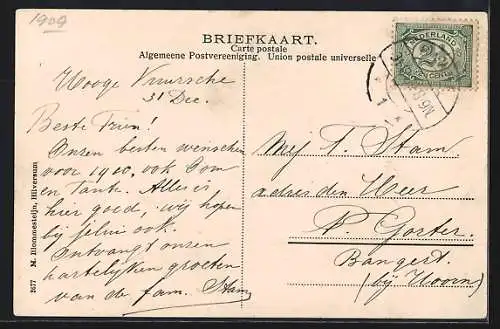 1909
BRIEFKAART.
Carte postale
Algemeene Postvereeniging. Union postale universelle
NEDERLAND
2½
CENT
Hooge Vuursche
31 Dec.
Beste Trien!
Onzen besten wenschen
voor 1910, ook Oom
en Tante. Alles is
hier goed, wij hopen
bij jelui ook.
Ontvangt onzen
hartelijken groeten
van de fam. Stam
Mej T. Stam.
adres den Heer
P. Gorter.
Bangert.
(bij Hoorn)
2677 M. Bloommesteijn, Hilversum